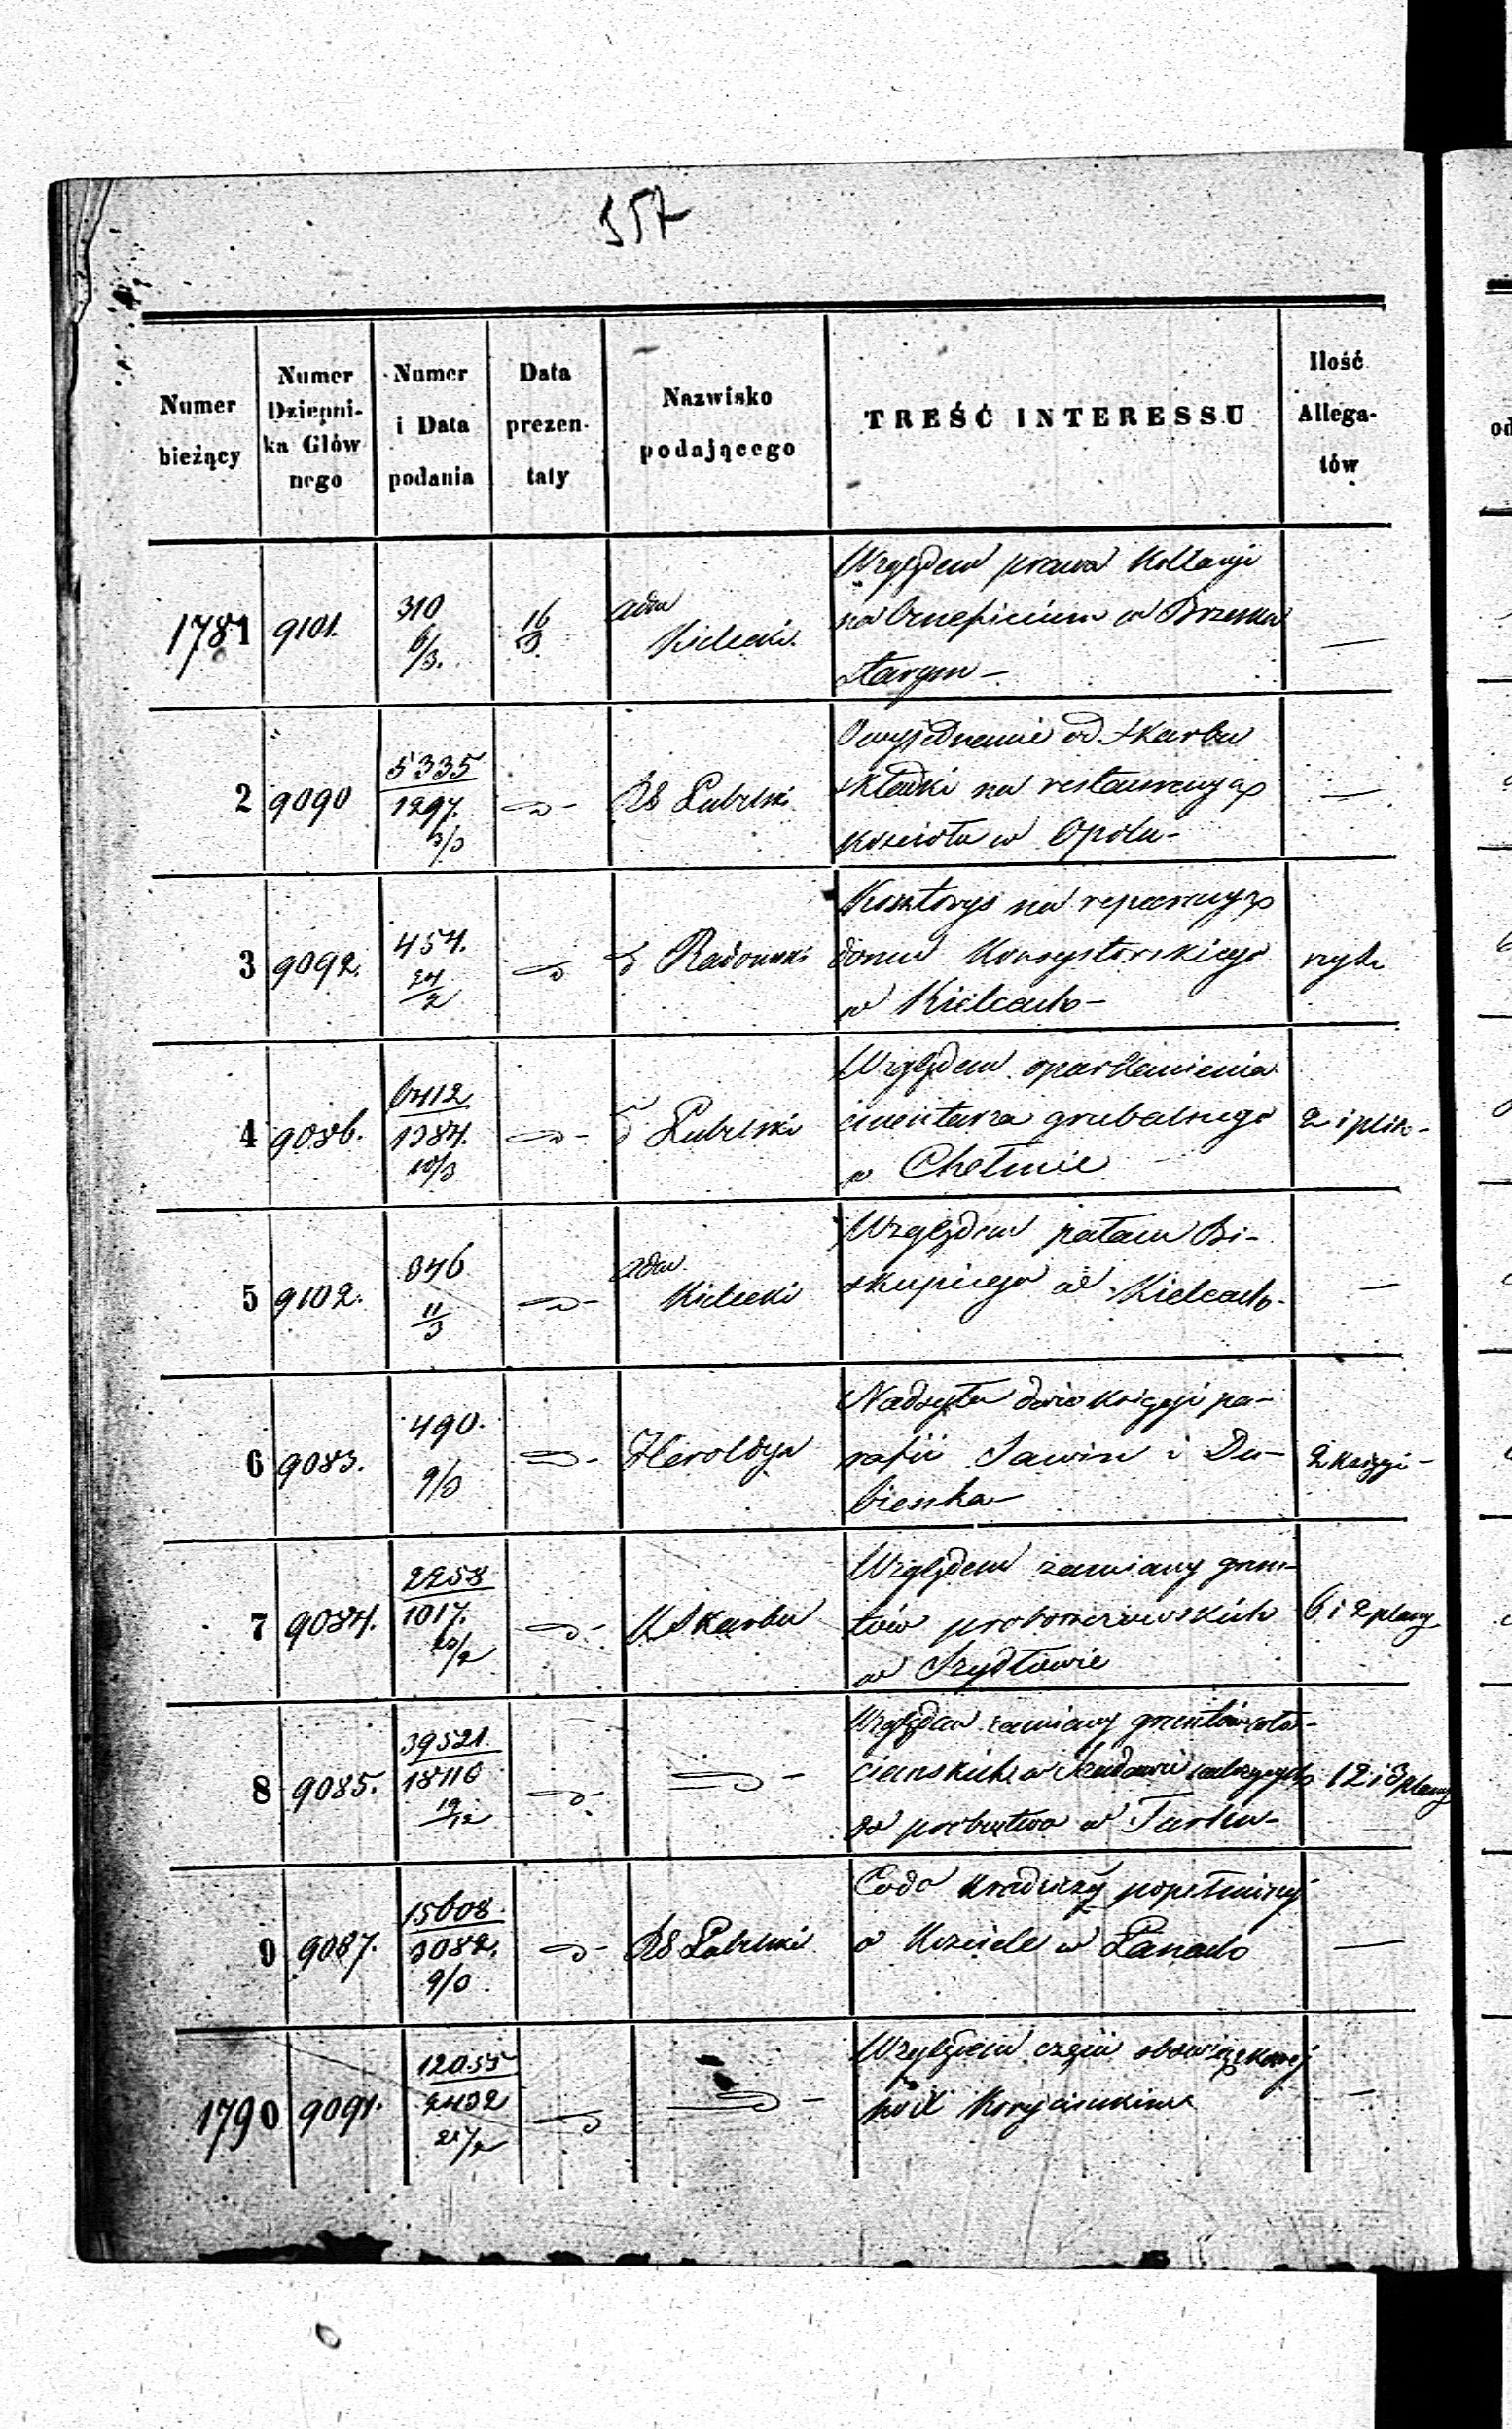 357
Numer
bieżący
Numer
Dzienni-
ka Głów
nego
Numer
i Data
podania
Data
prezen-
taty
Nazwisko
podającego
TREŚĆ INTERESSU
Ilość
Allega-
tów
1781 9101. 310 6/3. 16/3 adm Kielecki.
Względem prawa Kollacyi
na beneficium w Brzesku
starym –
—
2 9090 5335
1297. 3/3
RG Lubelski
Wyjednanie od skarbu
składki na restauracyą
kościoła w Opolu –
—
3 9092. 454. 24/2 Radomski
Kosztorys na reparacyą
domu Konsystorskiego
w Kielcach –
4 9086. 6412
1384. 10/3
Lubelski
Względem oparkanienia
cmentarza grzebalnego
w Chełmie
2 i plik –
5 9102. 346 11/3 adm Kielecki
Względem pałacu Bi-
skupiego w Kielcach –
—
6 9083. 490. 9/3 Heroldya
Nadsyła dwie księgi pa-
rafii Sawin i Du-
bienka –
2 księgi –
7 9084. 2258
1017. 20/2
K Skarbu
Względem zamiany grun-
tów proboszczowskich
w Szydłowie
6 i 2 plany
8 9085. 39521
18110 19/12
Względem zamiany gruntów wło-
ciańskich w
do probostwa w Turku –
12 i 3 plany
9 9087. 15608
3082. 9/3
RG Lubelski
Co do kradzieży popełnionej
w Kościele w Łanach
—
1790 9091. 12055
2432 21/2
Względem części obowiązkowej
pod
—